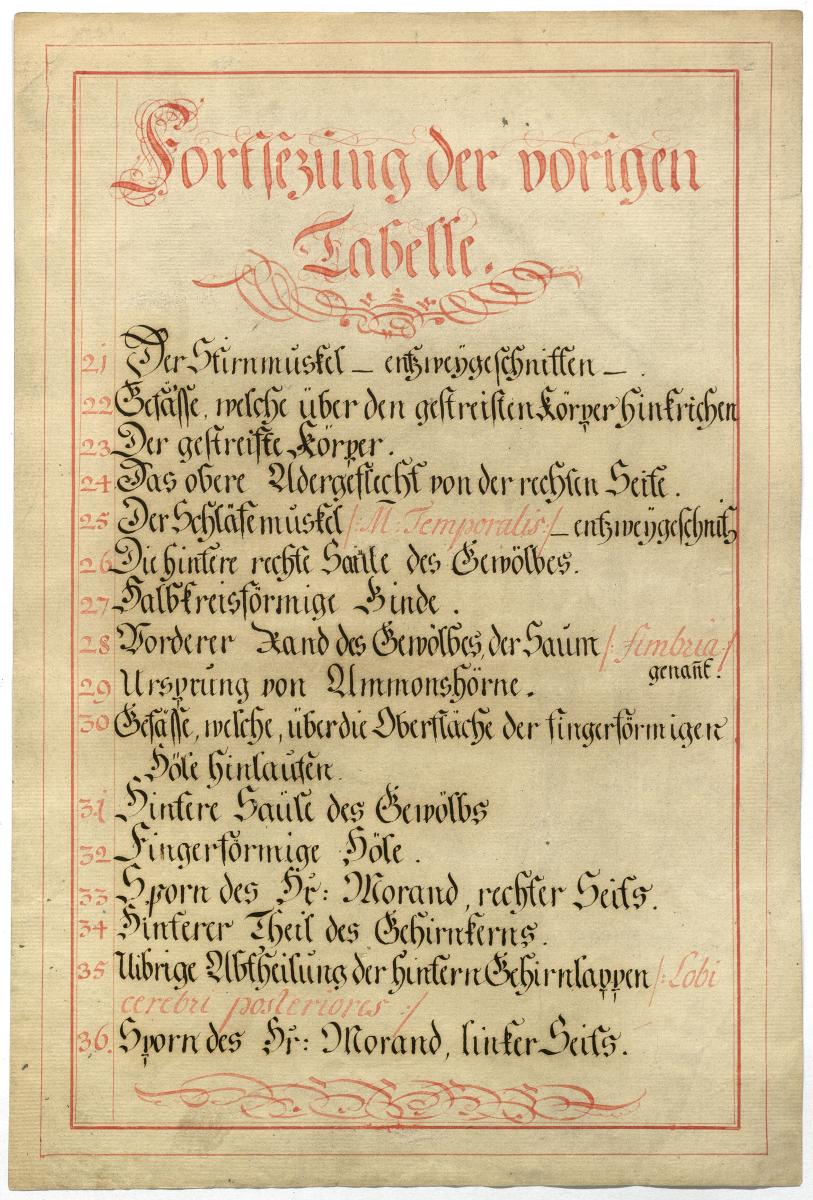 Fortsezung der vorigen
Tabelle.
21 Der Stirnmuskel – entzweygeschnitten – .
22 Gefässe, welche über den gestreiften Körper hinkrichen
23 Der gestreifte Körper.
24 Das obere Adergeflecht von der rechten Seite.
25 Der Schläfemuskel /: M: Temporalis :/ – entzweygeschnitz
26 Die hintere rechte Saüle des Gewölbes.
27 Halbkreisförmige Binde.
28 Vorderer Rand des Gewölbes, der Saum /: fimbria :/
genañt.
29 Ursprung von Ammonshörne.
30 Gefässe, welche, über die Oberfläche der fingerförmigen
Höle hinlaufen.
31 Hintere Saüle des Gewölbs
32 Fingerförmige Höle.
33 Sporn des Hr: Morand, rechter Seits.
34 Hinterer Theil des Gehirnkerns.
35 Uibrige Abtheilung der hintern Gehirnlappen /: Lobi
cerebri posteriores :/
36. Sporn des Hr: Morand, linker Seits.